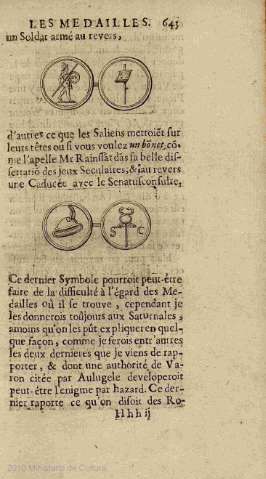 LES MEDAILLES. 643
un Soldat armé au revers,
d'autres ce que les Saliens mettoiēt sur
leurs têtes ou si vous voulez un bōnet, cō-
me l'apelle Mr Rainssāt dās sa belle dis-
sertatiō des jeux Seculaires, & au revers
une Caducée avec le Senatusconsulte,
S C
Ce dernier Symbole pourroit peut-être
faire de la difficulté à l'égard des Me-
dailles où il se trouve, cependant je
les donnerois toûjours aux Saturnales,
amoins qu'on les pût expliquer en quel-
que façon, comme je ferois entr'autres
les deux dernieres que je viens de rap-
porter, & dont une authorité de Va-
ron citée par Aulugele developeroit
peut-être l'enigme par hazard. Ce der-
nier raporte ce qu'on disoit des Ro-
Hhh ij
2010 Ministerio de Cultura